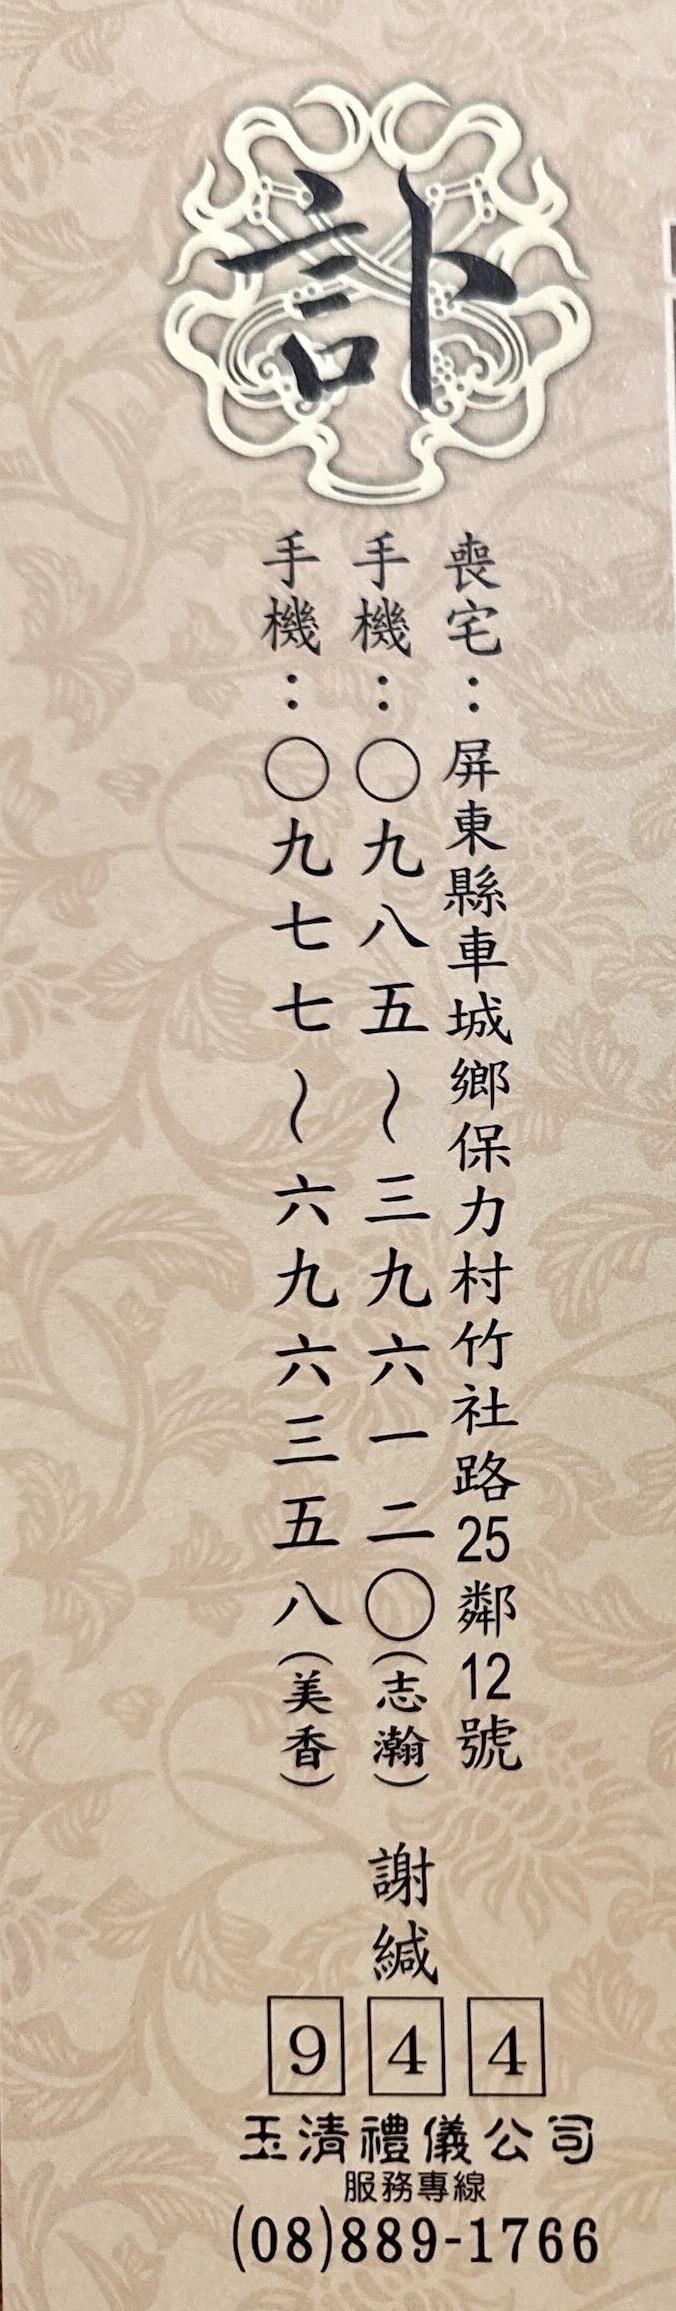 訃
喪宅：屏東縣車城鄉保力村竹社路25鄰12號
手機：〇九八五～三九六一二〇（志瀚）
手機：〇九七七～六九六三五八（美香）
謝緘
944
玉清禮儀公司
服務專線
(08)889-1766